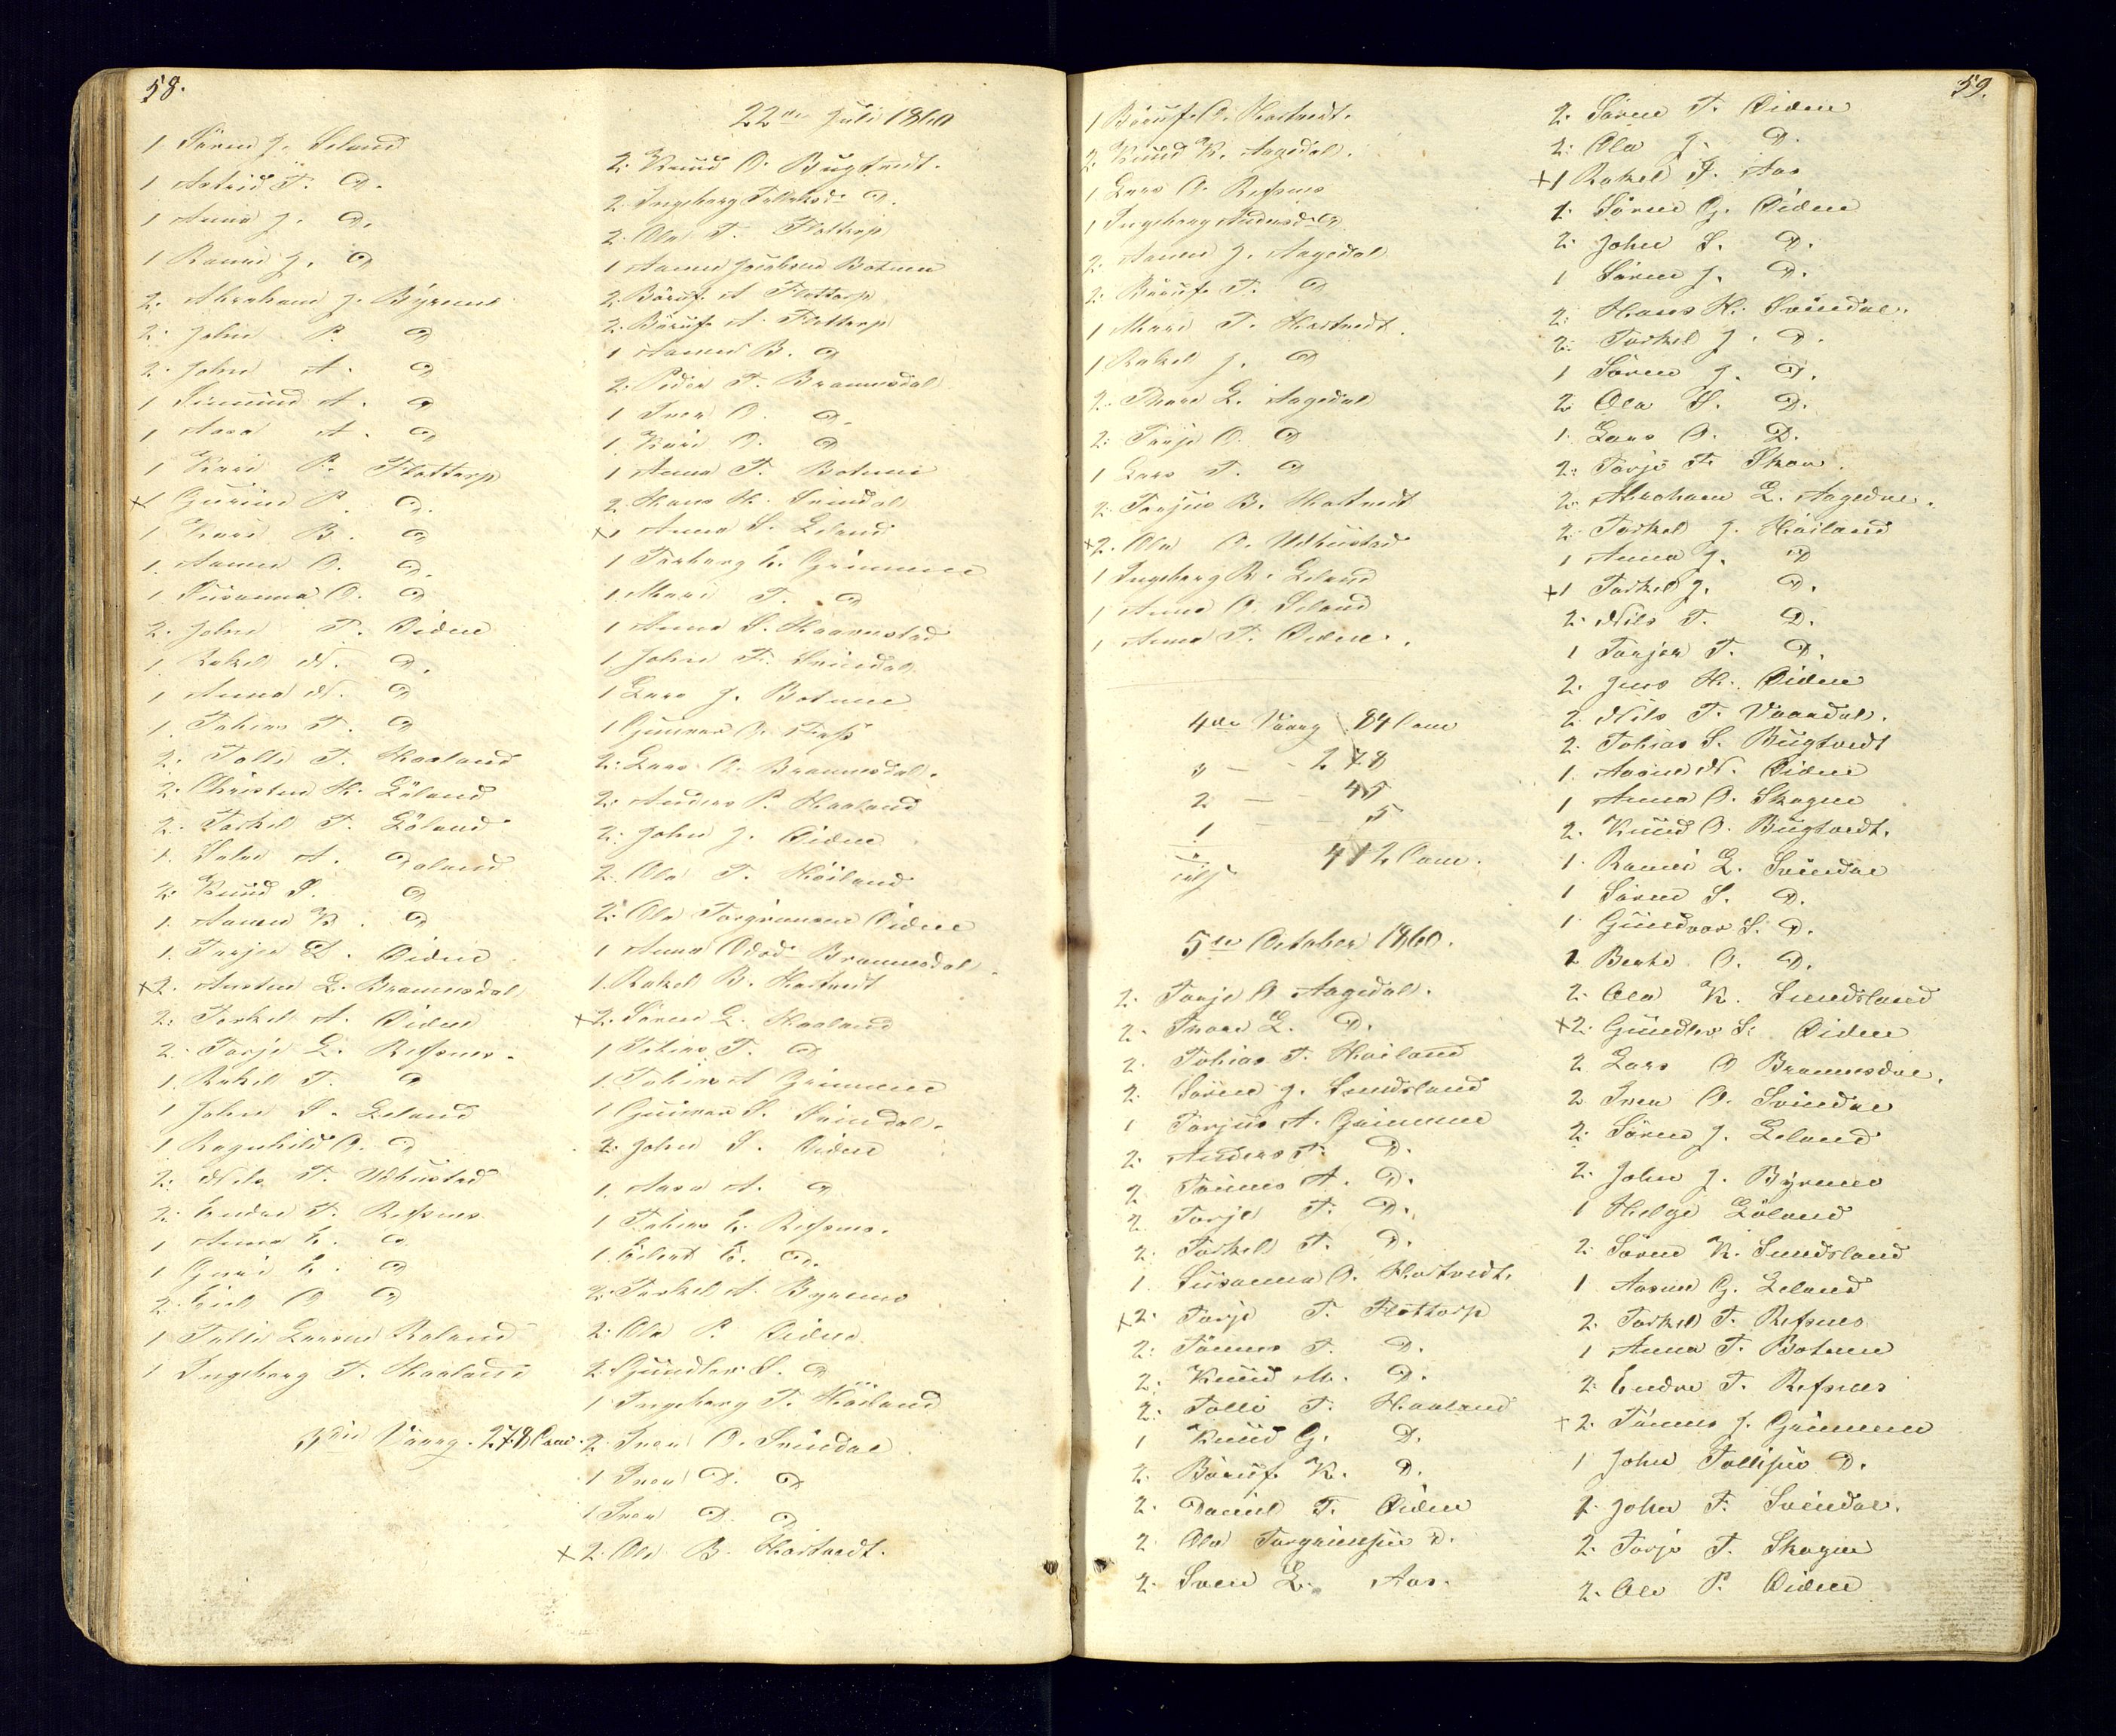 58.
1 Sören J. Leland
1 Astrid T. D.
1 Anna J. D.
1 Ranni J. D
2. Abraham J. Byremo
2. John P. D
2. John A. D
1 Simund A. D
1 Aasa A. D
1 Kari P. Flottorp
x1 Gurine P. D.
1 Kari B. D
1. Aanen O. D.
1. Susanna O. D
2. John T. Öidne
1. Rakel N. D.
1 Anna N. D
1. Tobias T. D
2. Tolli T. Haaland
2. Christen H. Löland
2. Torkel T. Löland
1. Salve A. Daland
2. Knud S. D
1. Aanen K. D
1. Terjer L. Öidne
x2. Austen L. Brannesdal
2. Torkel A. Öidne
2. Torje L. Refsnes.
1. Rakel T. D
1 John S. Leland
1 Ragnhild O. D
2. Nils T. Udbustad
2. Endre T. Refsnes.
1 Anna E. D
1 Guri E. D
2. Eiel O D
1 Tollir Larsen Roland
1 Ingeborg T. Haaland
3die Vaarg. 278 Com.
22de Juli 1860
2. Knud O. Bugtvedt.
2. Ingeborg Tollaksd. D.
2. Ola T. Flottorp
1 Aanen Jacobsen Botnen
2. Böruf A Flottorp
2. Böruf A. Flottorp
1 Aanen B. D
2. Peder T. Brannesdal
1 Iver O. D.
1. Kari O. D
1 Anna T. Botnne
2 Hans H. Svindal
x1 Anna S. Leland
1 Torborg E. Grimmene
1. Mari T. D
1 Anna S. Haaverstad
1. John T. Svindal
1 Lars J. Botnne
1 Gunnar O. Foss
2. Lars O. Brannesdal.
2. Anders P. Haaland
2. John J. Öidne
2. Ola T. Höiland
2. Ola Torgrimsen Öidne
1 Anna Odsd. Brannesdal.
1. Rakel B. Hostvedt
x2. Sören L. Haaland
1 Tobias T. D
1. Tobias A Grimmene
1 Gunvor S. Svindal.
2. John S. Öidne
1. Aasa A. D
1 Tobias E. Refsnes.
1. Edert E. D.
2. Torkel A. Byremo
2. Ola P. Öidne
2. Gundler S. D
1 Ingeborg T. Höiland
2. Iver O. Svindal
1 Iver D. D
1 Iver D. D
x2. Ole B. Hostvedt.
59.
1 Börruf O. Hostvedt.
2. Knud K. Aagedal.
1 Lars O. Refsnes
1 Ingeborg Andersd. D
2. Aanen J. Aagedal
2. Börruf T. D
1 Mari T. Hostvedt.
1 Rakel J. D
2. Thore L. Aagedal
2. Torje O. D
1 Lars T. D
2. Torjus B. Hostvedt
x2. Ola O. Udbustad
1 Ingeborg R. Leland
1 Anna O. Leland
1 Anna T. Öidne.
4de Vaarg 84 Com
3 — - 278
2 — — 45
1 — - 5
412 Com.
5te October 1860.
2. Torje O Aagedal.
2. Thore L. D.
2. Tobias T. Höiland
2. Sören J. Sundsland
1 Torjus A. Grimmene
2. Anders T. D.
2. Tönnes A. D.
2. Torje T. D.
2. Torkel T. D.
1. Susanna O. Hostvedt.
x2. Torje T. Flottorp
2. Tönnes T. D.
2. Knud M. D.
2. Tolli T. Haaland
1 Knud G. D.
2. Böruf K. D.
2. Daniel T. Öidne
2. Ola Torgrimsen D.
2. Sven L. Aas.
2. Sören T. Öidne
2. Ola J. D.
x1 Rakel T. Aas
1. Sören G. Öidne
2. John S. D.
1 Sören J. D.
2. Hans H. Svindal.
2. Torkel J. D.
1 Sören J. D.
2. Ola S. D.
1. Lars O. D.
2. Torje T. Skon.
2. Abraham L. Aagedal.
2. Torkel J. Höiland
1 Anna J. D
x1 Torkel J. D.
2. Nils T. D.
1 Terjer T. D.
2. Jens H. Öidne
2. Nils T. Vaardal.
2. Tobias S. Bugtvedt
1. Aasne N. Öidne
1 Anna O. Skagen
2. Knud O. Bugtvedt.
1. Ranni L. Svindal
1 Sören S. D.
1 Gundvor S. D.
1 Berte O. D.
2. Ola K. Sundsland
x2. Gundler S. Öidne
2 Lars O Brannesdal.
2. Iver O. Svindal
2. Sören J. Leland
2. John J. Byremo
1 Helge Löland
2. Sören K. Sundsland
1 Aasne G. Leland
2. Torkel T. Refsnes
1 Anna T. Botnne
2. Endre T. Refsnes
x2. Tönnes J. Grimmene
1 John Tollefsen D.
1. John T. Svindal.
2. Torje T. Skagen
2. Ole P. Öidne